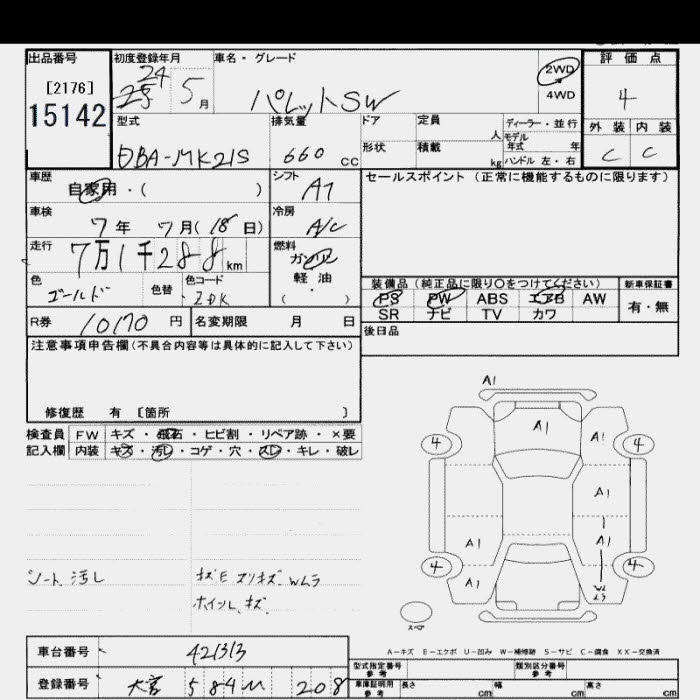 出品番号
[2176]
15142
初度登録年月
24
23 5月
車名・グレード
パレットSW
2WD
4WD
評価点
4
外装 内装
C C
型式
DBA-MK21S
排気量
660 CC
ドア
形状
定員 人
積載 kg
ディーラー・並行
モデル年式 年
ハンドル 左・右
車歴
自家用・( )
シフト
AT
セールスポイント (正常に機能するものに限ります)
車検
7年 7月(18日)
冷房
A/C
走行
7万1千288km
燃料
ガソリン
軽油
( )
色
ゴールド
色替
色コード
ZDK
装備品 (純正品に限り○をつけてください)
PS PW ABS エアB AW
SR ナビ TV カワ
新車保証書
有・無
R券 10170 円
名変期限 月 日
後日品
注意事項申告欄(不具合内容等は具体的に記入して下さい)
修復歴 有 〔箇所 〕
検査員記入欄
FW キズ・飛石・ヒビ割・リペア跡・×要
内装 キズ・汚レ・コゲ・穴・スレ・キレ・破レ
シート汚レ
キズE スリキズ Wムラ
ホイールキズ
A1
A1
A1
A1
A1
A1
A1
4
4
4
4
スペア
A-キズ E-エクボ U-凹み W-補修跡 S-サビ C-腐食 XX-交換済
車台番号 421313
登録番号 大宮 584 ム 208
型式指定番号 参考
類別区分番号 参考
車庫証明用 参考
長さ cm
幅 cm
高さ cm